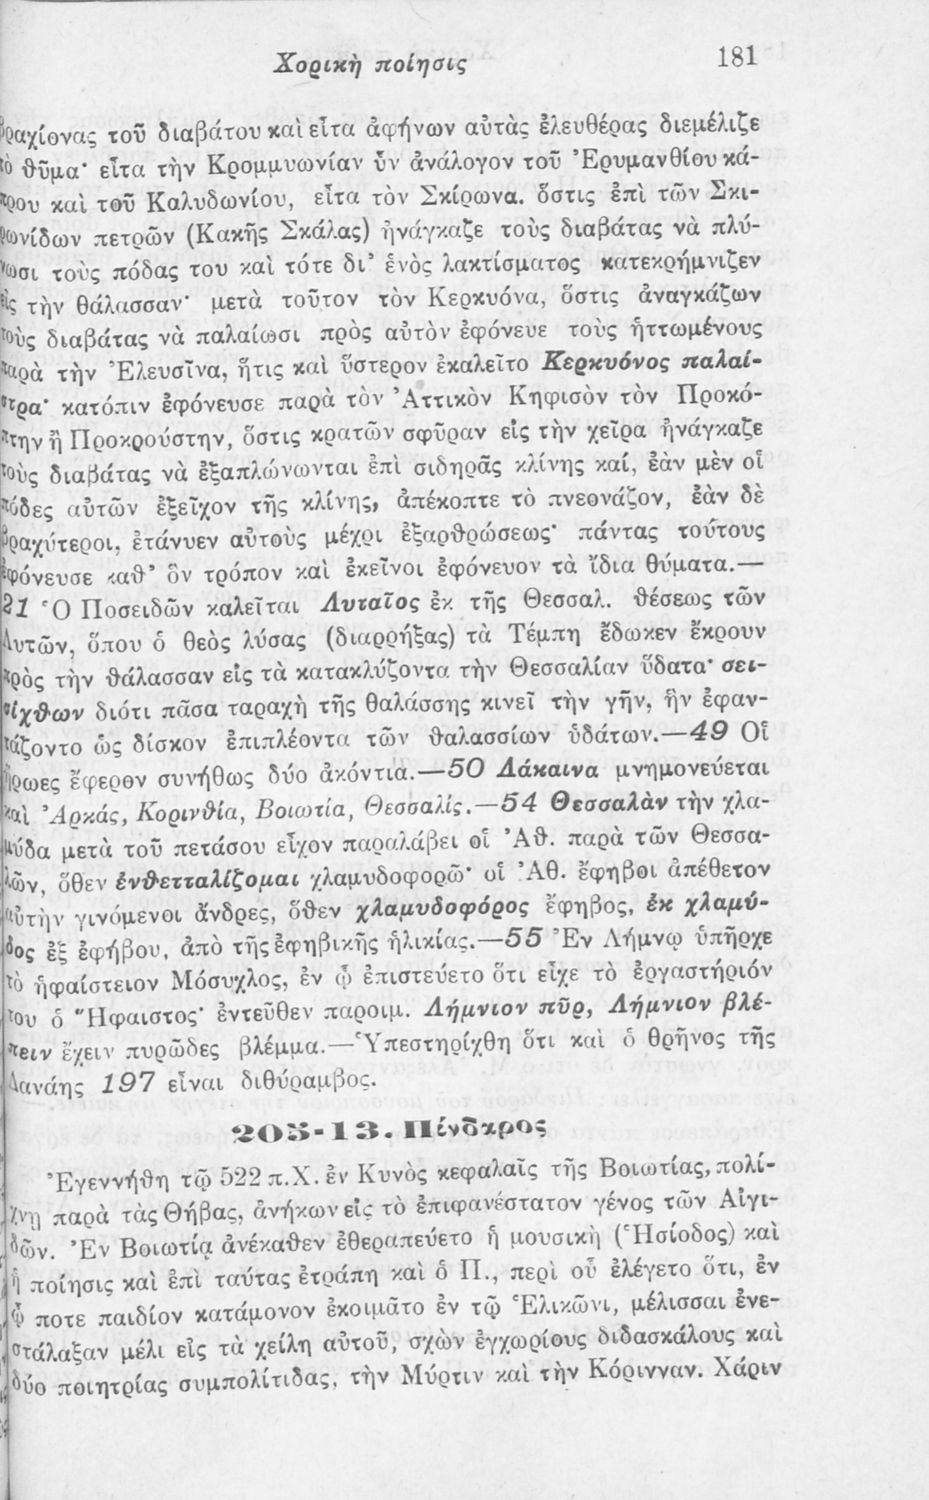 Χορικὴ ποίησις 181
βραχίονας τοῦ διαβάτου καὶ εἶτα ἀφήνων αὐτὰς ἐλευθέρας διεμέλιζε
τὸ θῦμα· εἶτα τὴν Κρομμυωνίαν ὗν ἀνάλογον τοῦ Ἐρυμανθίου κά-
πρου καὶ τοῦ Καλυδωνίου, εἶτα τὸν Σκίρωνα. ὅστις ἐπὶ τῶν Σκι-
ρωνίδων πετρῶν (Κακῆς Σκάλας) ἠνάγκαζε τοὺς διαβάτας νὰ πλύ-
νωσι τοὺς πόδας του καὶ τότε δι' ἑνὸς λακτίσματος κατεκρήμνιζεν
εἰς τὴν θάλασσαν· μετὰ τοῦτον τὸν Κερκυόνα, ὅστις ἀναγκάζων
τοὺς διαβάτας νὰ παλαίωσι πρὸς αὐτὸν ἐφόνευε τοὺς ἡττωμένους
παρὰ τὴν Ἐλευσῖνα, ἥτις καὶ ὕστερον ἐκαλεῖτο Κερκυόνος παλαί-
στρα· κατόπιν ἐφόνευσε παρὰ τὸν Ἀττικὸν Κηφισὸν τὸν Προκό-
πτην ἢ Προκρούστην, ὅστις κρατῶν σφῦραν εἰς τὴν χεῖρα ἠνάγκαζε
τοὺς διαβάτας νὰ ἐξαπλώνωνται ἐπὶ σιδηρᾶς κλίνης καί, ἐὰν μὲν οἱ
πόδες αὐτῶν ἐξεῖχον τῆς κλίνης, ἀπέκοπτε τὸ πνεονάζον, ἐὰν δὲ
βραχύτεροι, ἐτάνυεν αὐτοὺς μέχρι ἐξαρθρώσεως· πάντας τούτους
ἐφόνευσε καθ' ὃν τρόπον καὶ ἐκεῖνοι ἐφόνευον τὰ ἴδια θύματα.—
21 Ὁ Ποσειδῶν καλεῖται Λυταῖος ἐκ τῆς Θεσσαλ. θέσεως τῶν
Λυτῶν, ὅπου ὁ θεὸς λύσας (διαρρήξας) τὰ Τέμπη ἔδωκεν ἔκρουν
πρὸς τὴν θάλασσαν εἰς τὰ κατακλύζοντα τὴν Θεσσαλίαν ὕδατα· σει-
σίχθων διότι πᾶσα ταραχὴ τῆς θαλάσσης κινεῖ τὴν γῆν, ἣν ἐφαν-
τάζοντο ὡς δίσκον ἐπιπλέοντα τῶν θαλασσίων ὑδάτων.—49 Οἱ
ἥρωες ἔφερον συνήθως δύο ἀκόντια.—50 Λάκαινα μνημονεύεται
καὶ Ἀρκάς, Κορινθία, Βοιωτία, Θεσσαλίς.—54 Θεσσαλὰν τὴν χλα-
μύδα μετὰ τοῦ πετάσου εἶχον παραλάβει οἱ Ἀθ. παρὰ τῶν Θεσσα-
λῶν, ὅθεν ἐνθετταλίζομαι χλαμυδοφορῶ· οἱ Ἀθ. ἔφηβοι ἀπέθετον
αὐτὴν γινόμενοι ἄνδρες, ὅθεν χλαμυδοφόρος ἔφηβος, ἐκ χλαμύ-
δος ἐξ ἐφήβου, ἀπὸ τῆς ἐφηβικῆς ἡλικίας.—55 Ἐν Λήμνῳ ὑπῆρχε
τὸ ἡφαίστειον Μόσυχλος, ἐν ᾧ ἐπιστεύετο ὅτι εἶχε τὸ ἐργαστήριόν
του ὁ Ἥφαιστος· ἐντεῦθεν παροιμ. Λήμνιον πῦρ, Λήμνιον βλέ-
πειν ἔχειν πυρῶδες βλέμμα.—Ὑπεστηρίχθη ὅτι καὶ ὁ θρῆνος τῆς
Δανάης 197 εἶναι διθύραμβος.
205-13. Πίνδαρος
Ἐγεννήθη τῷ 522 π.Χ. ἐν Κυνὸς κεφαλαῖς τῆς Βοιωτίας, πολί-
χνῃ παρὰ τὰς Θήβας, ἀνήκων εἰς τὸ ἐπιφανέστατον γένος τῶν Αἰγι-
δῶν. Ἐν Βοιωτίᾳ ἀνέκαθεν ἐθεραπεύετο ἡ μουσικὴ (Ἡσίοδος) καὶ
ἡ ποίησις καὶ ἐπὶ ταύτας ἐτράπη καὶ ὁ Π., περὶ οὗ ἐλέγετο ὅτι, ἐν
ᾧ ποτε παιδίον κατάμονον ἐκοιμᾶτο ἐν τῷ Ἑλικῶνι, μέλισσαι ἐνε-
στάλαξαν μέλι εἰς τὰ χείλη αὐτοῦ, σχὼν ἐγχωρίους διδασκάλους καὶ
δύο ποιητρίας συμπολίτιδας, τὴν Μύρτιν καὶ τὴν Κόρινναν. Χάριν